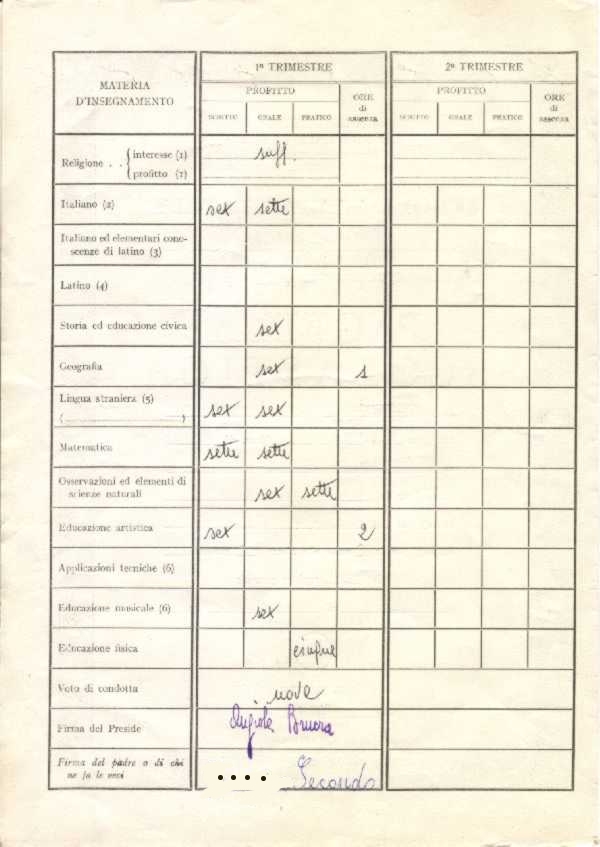 MATERIA D'INSEGNAMENTO
1º TRIMESTRE
2º TRIMESTRE
PROFITTO
ORE di assenza
PROFITTO
ORE di assenza
SCRITTO ORALE PRATICO
SCRITTO ORALE PRATICO
Religione . . { interesse (1) suff.
profitto (1)
Italiano (2) sex sette
Italiano ed elementari cono-
scenze di latino (3)
Latino (4)
Storia ed educazione civica sex
Geografia sex 1
Lingua straniera (5) sex sex
( )
Matematica sette sette
Osservazioni ed elementi di
scienze naturali sex sette
Educazione artistica sex 2
Applicazioni tecniche (6)
Educazione musicale (6) sex
Educazione fisica cinque
Voto di condotta nove
Firma del Preside Bruera
Firma del padre o di chi
ne fa le veci .... Secondo